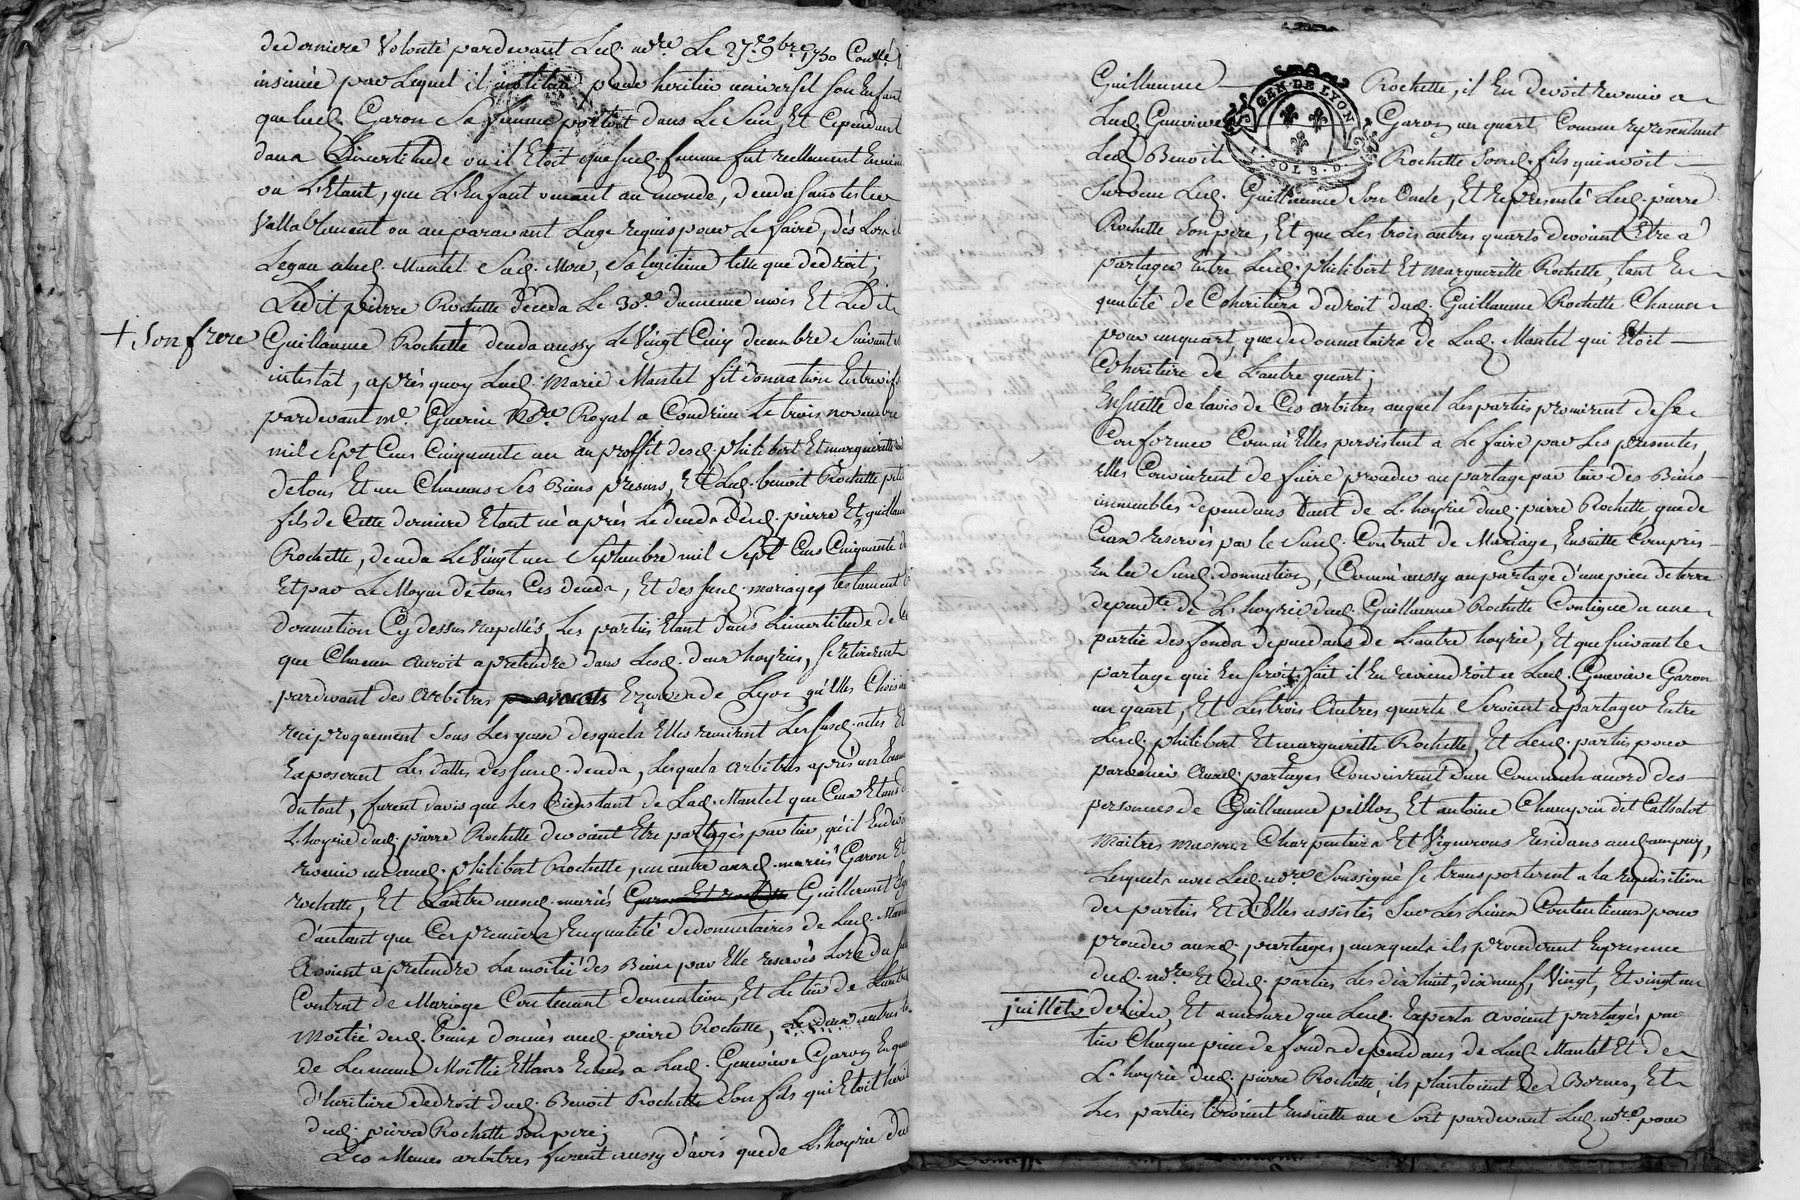 de derniere Volonté pardevant Led. nore. Le 27e. 9bre. 1750 Conllé
insinué par Lequel il institua pour heritier universel Son Enfant
que lad. Garon Sa femme portoit dans Le Sein, Et Cependant
dans L'incertitude ou il Etoit que sad. femme fut reellement Enceinte
ou L'Etant, que L'Enfant venant au monde, deceda sans tester
Vallablement ou auparavant L'age requis pour Le faire, dès Lors il
Legua a lad. Mantel Sad. Mere, Sa legitime telle que de droit;
Ledit pierre Rochette deceda Le 30e. du meme mois Et Ledit
+ Son frere
Guillaume Rochette + deceda aussy Le Vingt Cinq decembre Suivant
intestat, après quoy Lad. Marie Mantel fit donnation Entrevifs
pardevant me. Guerin Nore. Royal a Condrieu Le trois novembre
mil Sept Cens Cinquante un au proffit desd. philibert Et margueritte
de tous Et un Chacuns Ses Biens presens, Et Led. benoit Rochette petit
fils de Cette derniere Etant né après Le deceds dud. pierre Et guillaume
Rochette, deceda Le Vingt un Septembre mil Sept Cens Cinquante
Et par Le Moyen de tous Ces deceds, Et des susd. mariages, testament
donnation Cy dessus rapellés, Les parties Etant dans L'incertitude de
que Chacun auroit a pretendre dans Lesd. deux hoyries, se retirerent
pardevant des arbitres avocats Ez Cours de Lyon, qu'elles Choisirent
reciproquement Sous Les yeux desquels Elles remirent Les susd. actes Et
Exposerent Les dattes des susd. deceds, Lesquels arbitres après
du tout, furent d'avis que Les Biens tant de Lad. Mantel que Ceux Etans
L'hoyrie dud. pierre Rochette devoient Etre partagés par tiers, qu'il En devoit
revenir un aud. philibert Rochette, un autre auxd. mariés Garon Et
rochette, Et L'autre auxd. mariés Guillermet
d'autant que Ces premiers En qualité de donnataires de Lad. Mantel
avoient a pretendre La moitié des Biens par Elle reservés Lors du
Contrat de Mariage Contenant donnation, Et Le tiers de L'autre
moitié desd. biens donnés aud. pierre Rochette, Les deux autres
de La meme Moitié Etans Echus a Lad. Geneviève Garon En qualité
d'heritiere de droit dud. Benoit Rochette Son fils qui Etoit heritier
dud. pierre Rochette Son pere;
Les Memes arbitres furent aussy d'avis que de L'hoyrie dud.
Guillaume Rochette, il En devoit revenir a
Lad. Geneviève Garon un quart Comme representant
Led. Benoit Rochette Sond. fils qui avoit
Survecu Led. Guillaume Son Oncle, Et representé Led. pierre
Rochette Son pere, Et que Les trois autres quarts devoient Etre a
partager Entre Lesd. philibert Et marguerite Rochette, tant En
qualité de Coheritiers de droit dud. Guillaume Rochette Chacun
pour un quart, que de donnataire de Lad. Mantel qui Etoit
Coheritiere de L'autre quart;
Ensuitte de L'avis de Ces arbitres auquel Les parties promirent de se
Conformer Comm'Elles persistent a Le faire par Les presentes,
elles Convinrent de faire proceder au partage par tiers des Biens
immeubles dependans tant de L'hoyrie dud. pierre Rochette, que de
Ceux reservés par le Susd. Contrat de Mariage, Ensuitte Compris
En La Susd. donnation, Comm'aussy au partage d'une piece de terre
dependte. de L'hoyrie dud. Guillaume Rochette Contigue a une
partie des fonds dependans de L'autre hoyrie, Et que suivant le
partage qui En seroit fait il En reviendroit a Lad. Geneviève Garon
un quart, Et Les trois Autres quarts Seroient a partager Entre
Lesd. philibert Et marguerite Rochette, Et Lesd. parties pour
parvenir auxd. partages Convinrent d'un Commun accord des
personnes de Guillaume peillon Et antoine Champin dit Catholot
Maitres Massons Charpentiers Et Vignerons residans aud. ampuy,
Lesquels avec Led. nore. Soussigné se transporterent a la requisition
des parties Et d'Elles assistés Sur Les Lieux Contentieux pour
proceder auxd. partages, auxquels ils procederent En presence
dud. nore. Et desd. parties Les dix huit, dix neuf, Vingt, Et vingt un
juillet dernier, Et a mesure que Lesd. Experts avoient partagés par
tiers Chaque piece de fonds dependans de Lad. Mantel Et de
L'hoyrie dud. pierre Rochette, ils plantoient des Bornes, Et
Les parties tiroient Ensuitte au Sort pardevant Led. nore. pour
GEN. DE LYON
SOLS. D.